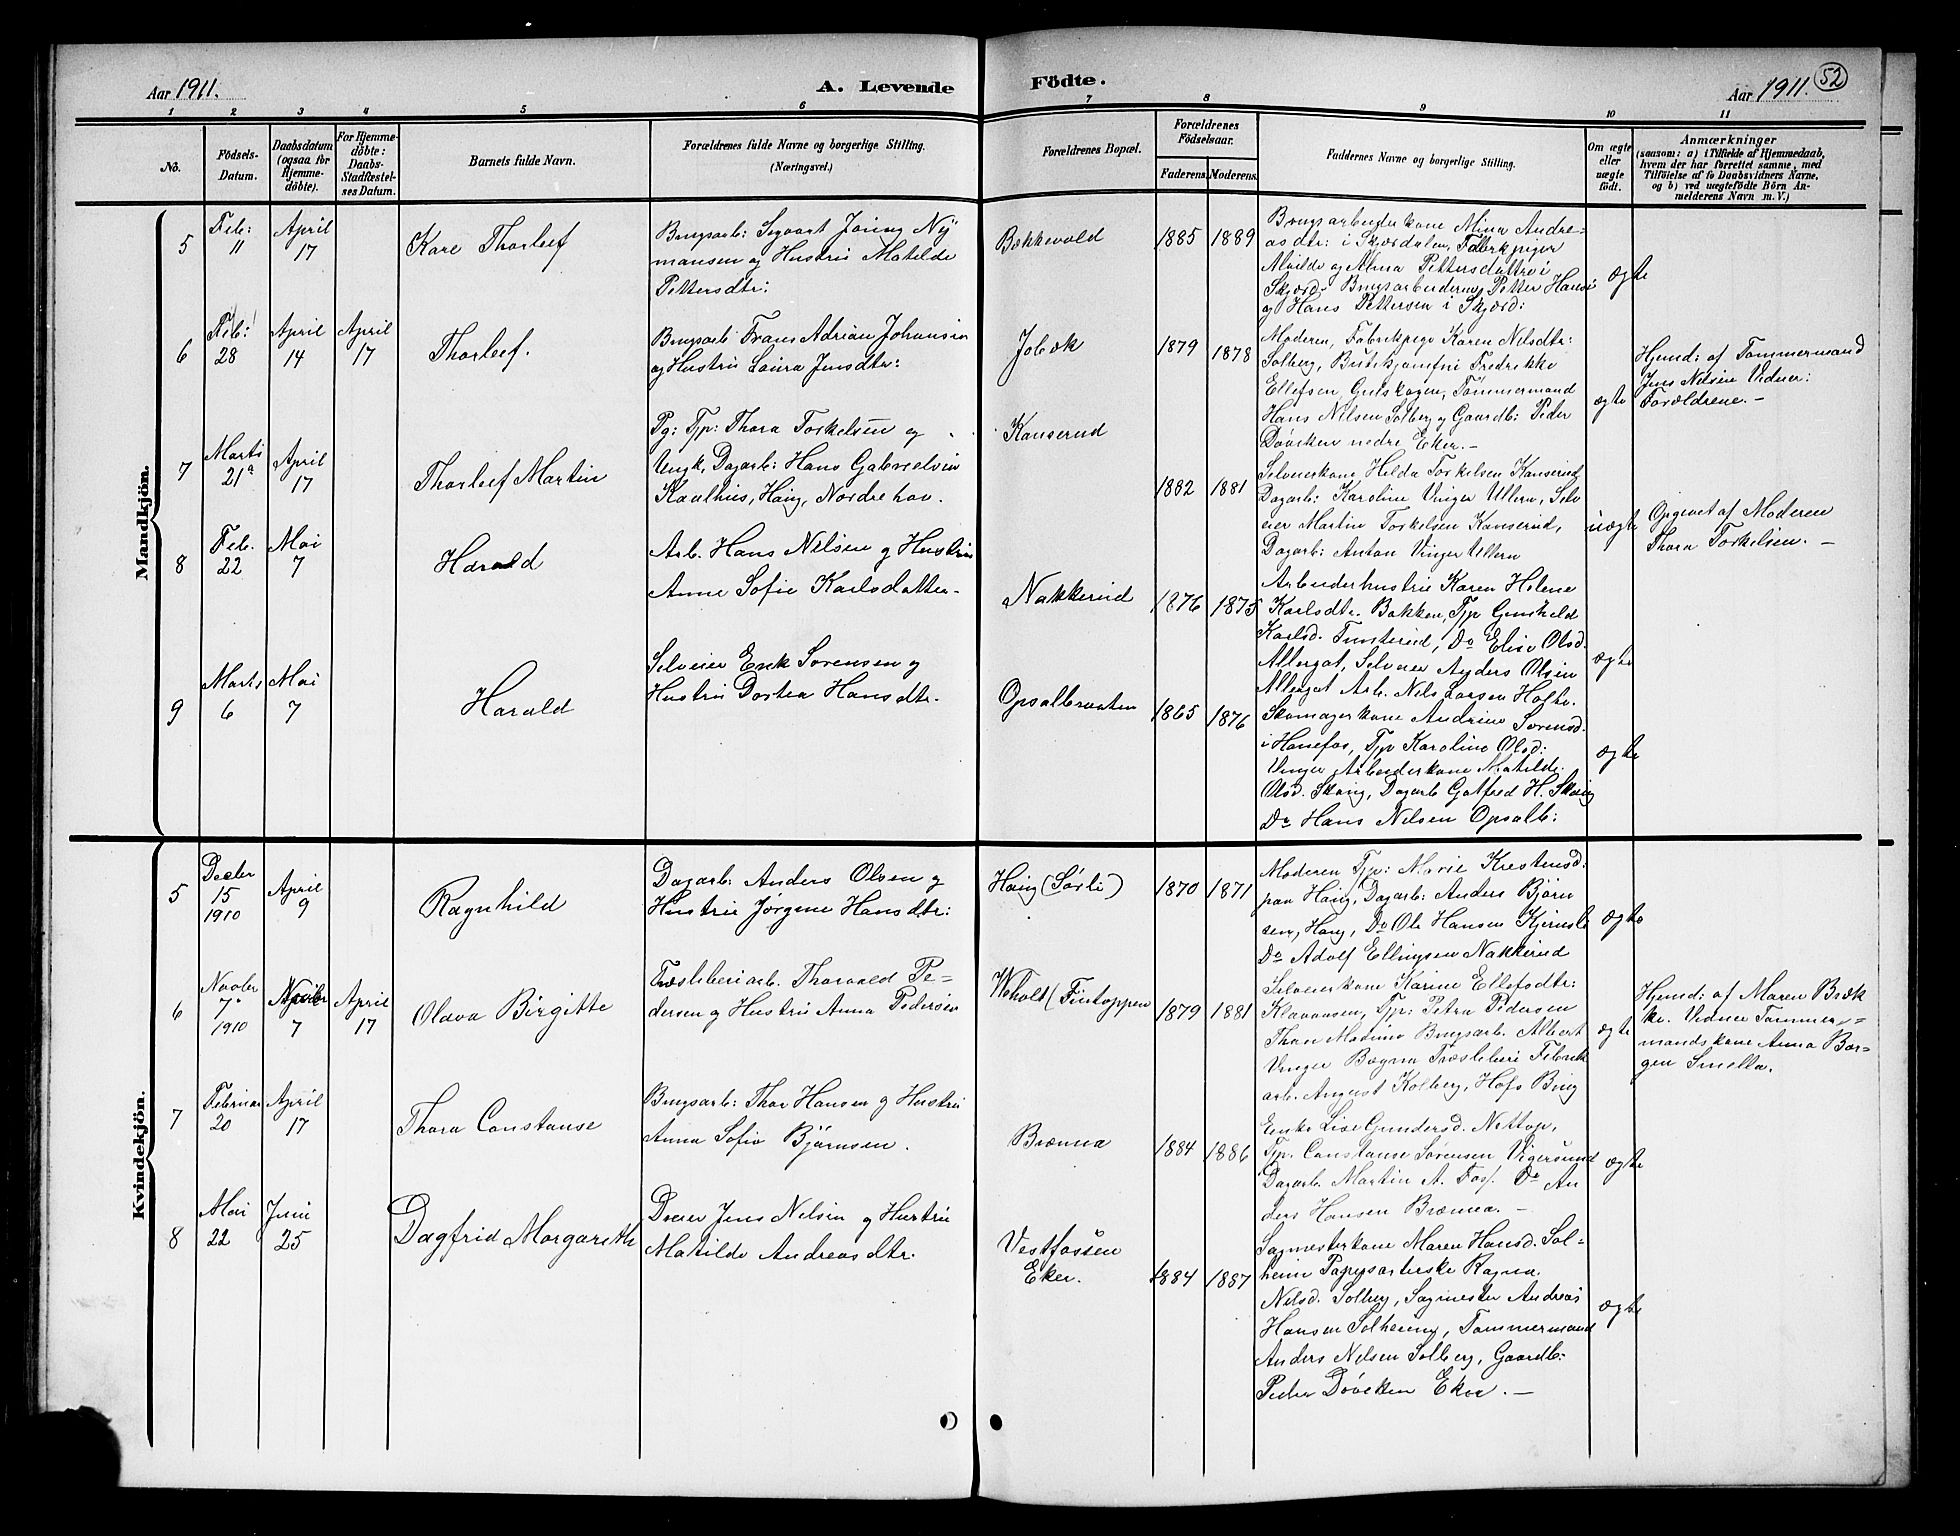 Aar 1911.
A. Levende Födte.
Aar 1911. 52
1 2 3 4 5 6 7 8 9 10 11
No.
Födsels-
Datum.
Daabsdatum
(ogsaa for
Hjemme-
döbte).
For Hjemme-
döbte:
Daabs-
Stadfæstel-
ses Datum.
Barnets fulde Navn.
Forældrenes fulde Navne og borgerlige Stilling.
(Næringsvei.)
Forældrenes Bopæl.
Forældrenes
Födselsaar.
Faderens. Moderens.
Faddernes Navne og borgerlige Stilling.
Om ægte
eller
uægte
födt.
Anmærkninger
(saasom: a) i Tilfælde af Hjemmedaab,
hvem der har forrettet samme, med
Tilföielse af to Daabsvidners Navne,
og b) ved uægtefödte Börn An-
melderens Navn m. V.)
Mandkjön.
5
Feb:
11
April
17
Kåre Thorleef
Brugsarb: Sigvart Jöring Ny
mansen og Hustru Matilde
Pettersdtr:
Bækkevold
1885 1889
Brugsarbeiderkone Mina Andre-
asdtr: i Skjærdalen, Fabrikpiger
Alvilde og Alma Pettersdattre i
Skjærd. Brugsarbeiderne Petter Hansen
og Hans Pettersen i Skjærd:
ægte
6
Feb:
28
April
14
April
17
Thorleef.
Brugsarb: Frans Adrian Johansen
og Hustru Laura Jensdtr:
Jobæk
1879 1878
Moderen, Fabrikpige Karen Nilsdtr:
Solberg, Butikjomfru Fredrikke
Ellefsen, Gulskogen, Tömmermand
Hans Nilsen Solberg og Gaardb: Peder
Dövicken nedre Eker.-
ægte
Hjemd: af Tömmermand
Jens Nilsen Vidner:
Forældrene.-
7
Marts
21
April
17
Thorleef Martin
Pg: Tjp: Thora Torkelsen og
Ungk, Dagarb: Hans Gabrielsen
Kaalhus, Haug, Nordrehov.
Kanserud
1882 1881
Selveierkone Helda Torkelsen Kanserud
Dagarb: Karoline Vinger Ullern, Selv
eier Martin Torkelsen Kanserud,
Dagarb: Anton Vinger Ullern
uægte
Opgivet af Moderen
Thora Torkelsen.-
8
Feb.
22
Mai
7
Harald
Arb. Hans Nilsen og Hustru
Anne Sofie Karlsdatter-
Nakkerud
1876 1875
Arbeiderhustru Karen Helene
Karlsdtr. Bakken, Tjp Gunhild
Karlsd. Tunterud, Do Elise Olsd.
Allergot, Selveier Anders Olsen
Allergot Arb. Nils Larsen Holte.
ægte
9
Marts
6
Mai
7
Harald
Selveier Erik Sorensen og
Hustru Dortea Hansdtr.
Opsalbraaten
1865 1876
Skomagerkone Andrine Sorensd.
i Hönefos, Tjp Karoline Olsd:
Vinger Arbeiderkone Matilde
Olsd. Skoug, Dagarb Gotfred H. Skoug
Do Hans Nilsen Opsalb:
ægte
Kvindekjön.
5
Decbr
15
1910
April
9
Ragnhild
Dagarb: Anders Olsen og
Hustru Jørgene Hansdtr:
Haug (Sørli)
1870 1871
Moderen Tjp: Marie Kristensd:
paa Haug, Dagarb: Anders Bjørn
sen, Haug, Do Ole Hansen Kjernsli
Do Adolf Ellingsen Nakkerud
ægte
6
Novbr
7
1910
Novbr
7
April
17
Olava Birgitte
Træsliberiarb. Thorvald Pe-
dersen og Hustru Anna Pedersen
Wehold (Fintoppen
1879 1881
Selveierkone Karine Ellefsdtr:
Klavansen, Tjp: Petra Pedersen
Thor Modumo Brugsarb. Albert
Vinger Bægna Træsliberi Fabrik
arb. August Kolberg, Hofs Brug
ægte
Hjemd: af Maren Bræk
ke. Vidner Tömmer-
mandskone Anna Bor-
gen Smella.
7
Februar
20
April
17
Thora Constanse
Brugsarb: Thor Hansen og Hustru
Anna Sofie Björnsen.
Brænna
1884 1886
Enke Lise Gundersd. Nettop,
Tjp. Constanse Sørensen Vigersund
Dagarb. Martin A. Fos. Do An
ders Hansen Brænna.-
ægte
8
Mai
22
Juni
25
Dagfrid Margareth
Dreier Jens Nilsen og Hustru
Matilde Andreasdtr.
Vestfossen
Eker.
1884 1887
Sagmesterkone Maren Hansd. Sol-
heim Papegsarterske Ragna
Nilsd. Solberg, Sagmester Andreas
Hansen Solheim, Tömmermand
Anders Nilsen Solberg, Gaardb:
Peder Dövicken Eker.-
ægte